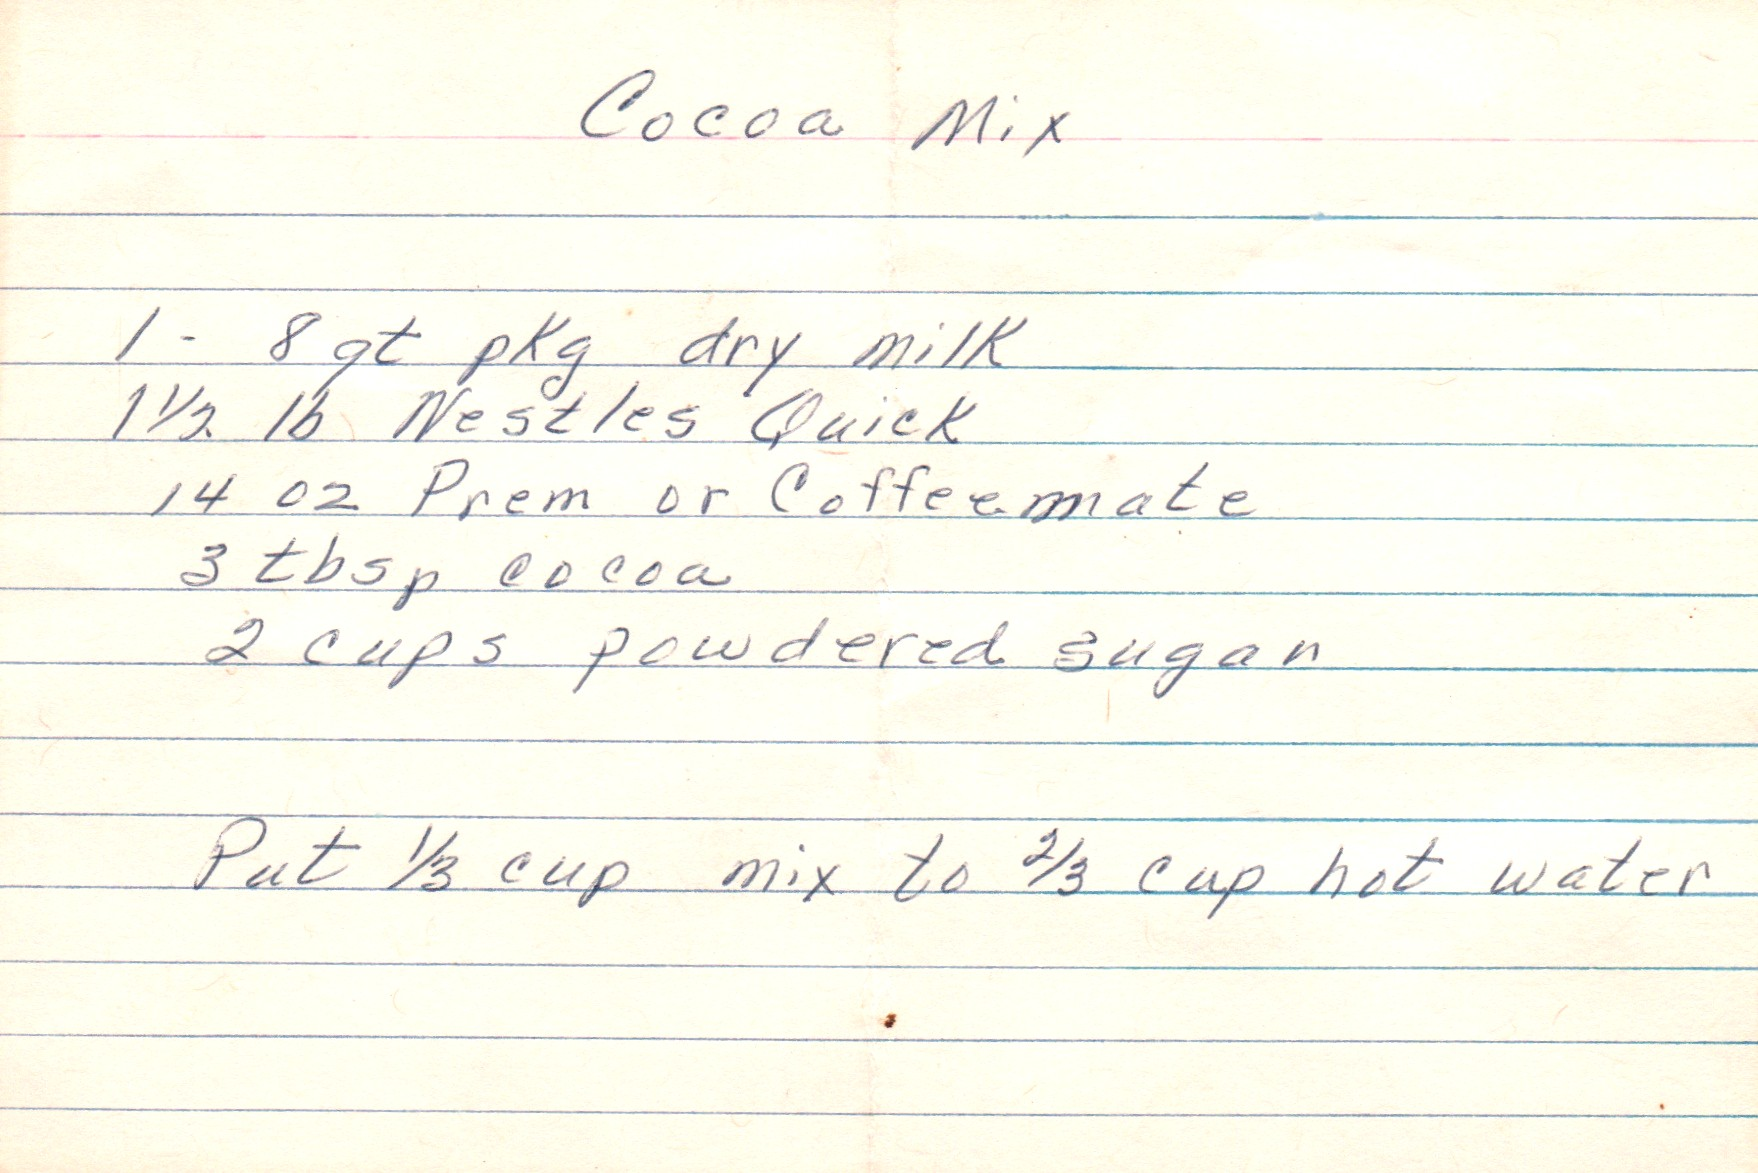 Cocoa Mix
1 - 8 qt pkg dry milk
1 1/2 lb Nestles Quick
14 oz Prem or Coffeemate
3 tbsp cocoa
2 cups powdered sugar
Put 1/3 cup mix to 2/3 cup hot water